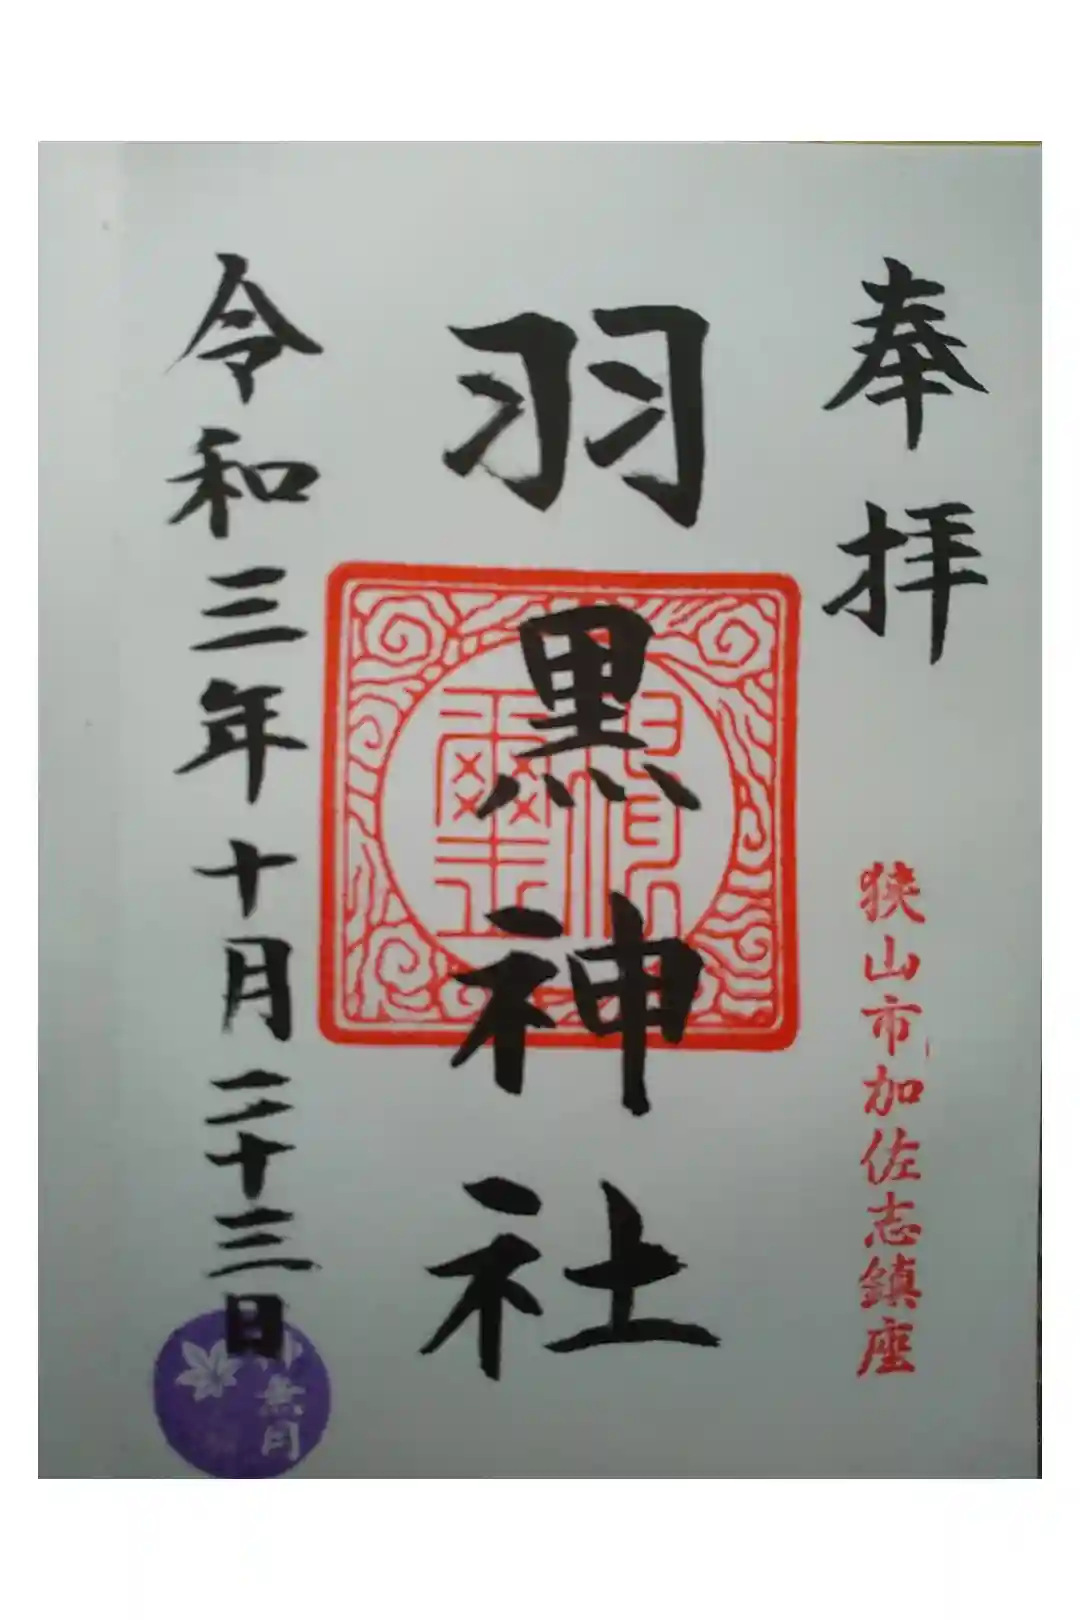 奉拝
狭山市加佐志鎮座
羽黒神社
令和三年十月二十三日
神無月